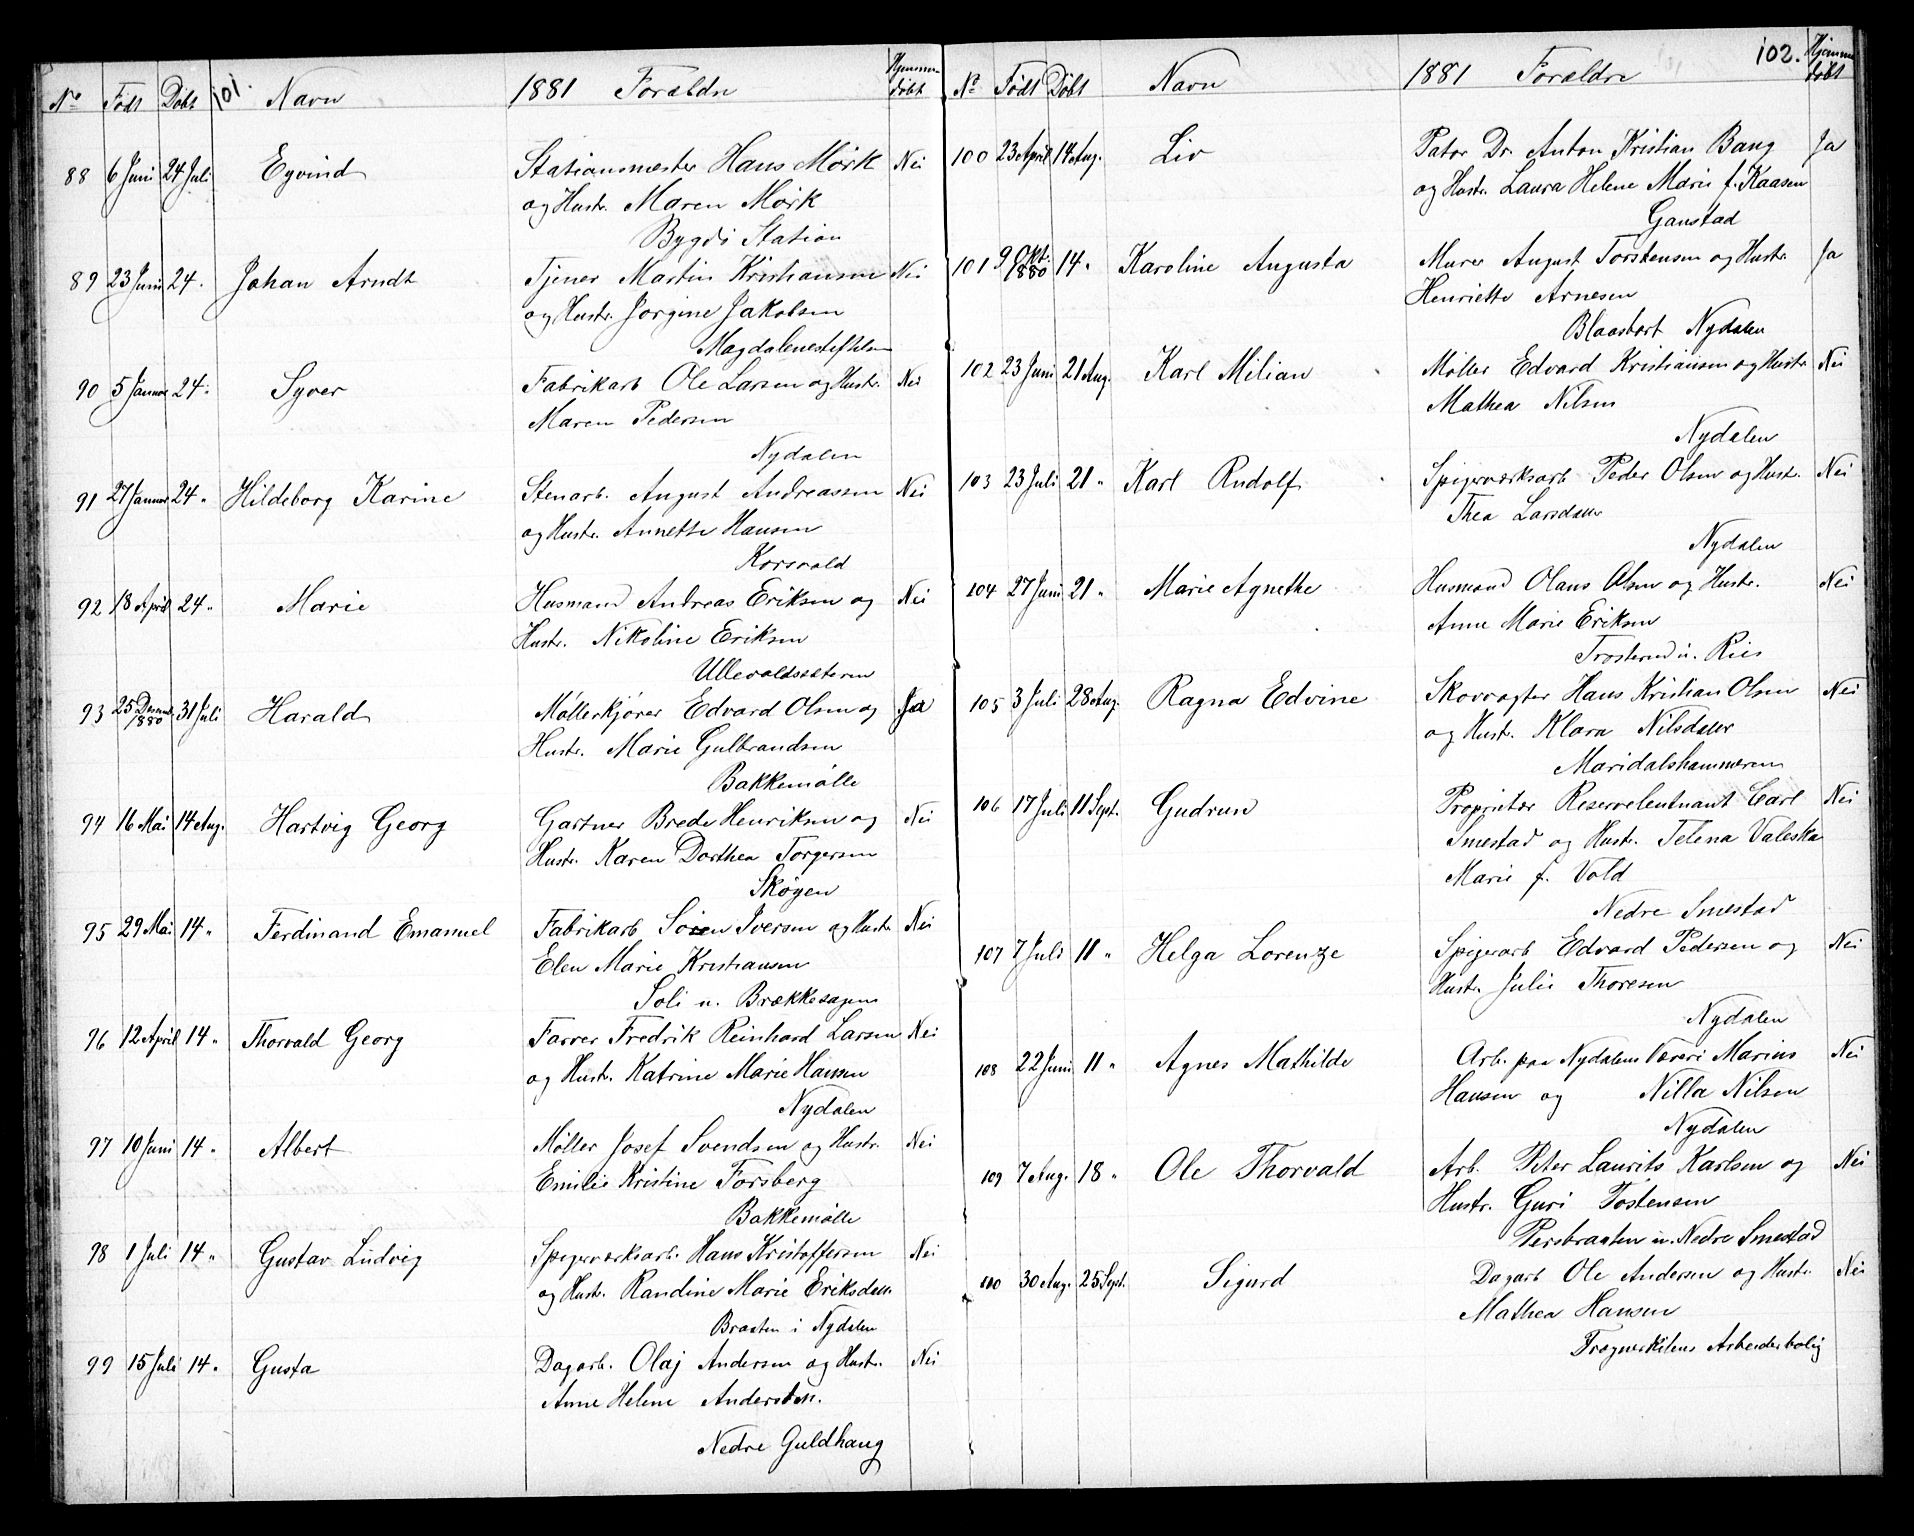 101.
No Født Døbt Navn 1881 Forældre Hjemme-døbt
88 6 Juni 24 Juli Eyvind Stationsmester Hans Mörk Nei
og Hustr. Maren Mörk
Bygdö Station
89 23 Juni 24. Johan Arndt Tjener Martin Kristiansen Nei
og Hustr. Jorgine Jakobsen
Magdalenestiftelsen
90 5 Januar 24. Syver Fabrikarb Ole Larsen og Hustr. Nei
Maren Pedersen
Nydalen
91 27 Januar 24 " Hildeborg Karine Stenarb. August Andreassen Nei
og Hustr. Annette Hansen
Korsvold
92 18 April 24 " Marie Husmand Andreas Eriksen og Nei
Hustr. Nikoline Eriksen
Ullevoldssæteren
93 25 Decemb. 1880 31 Juli Harald Møllerkjører Edvard Olsen og Ja
Hustr. Marie Gulbrandsen
Bakkemølle
94 16 Mai 14 Aug. Hartvig Georg Gartner Brede Henriksen og Nei
Hustr. Karen Dorthea Torgersen
Skøyen
95 29 Mai 14 " Ferdinand Emanuel Fabrikarb Sören Iversen og Hustr Nei
Elen Marie Kristiansen
Soli u. Brækkesagen
96 12 April 14 " Thorvald Georg Farver Fredrik Reinhard Larsen Nei
og Hustr. Katrine Marie Hansen
Nydalen
97 10 Juni 14 " Albert Møller Josef Svendsen og Hustr. Nei
Emilie Kristine Forsberg
Bakkemølle
98 1 Juli 14 " Gustav Ludvig Spigerværksarb. Hans Kristoffersen Nei
og Hustr. Randine Marie Eriksdatt.
Braaten i Nydalen
99 15 Juli 14 " Gusta Dagarb. Olaj Andersen og Hustr. Nei
Anne Helene Andersen.
Nedre Guldhaug
102.
No Født Døbt Navn 1881 Forældre Hjemme døbt
100 23 April 14 Aug. Liv Pator Dr. Anton Kristian Bang Ja
og Hustr. Laura Helene Marie f. Kaasen
Ganstad
101 9 Okt. 1880 14 " Karoline Augusta Murer August Torstensen og Hustr. Ja
Henriette Arnesen
Blaasbort Nydalen
102 23 Juni 21 Aug. Karl Milian Møller Edvard Kristiansen og Hustr Nei
Mathea Nilsen
Nydalen
103 23 Juli 21 " Karl Rudolf Spigerværksarb Peder Olsen og Hust. Nei
Thea Larsdatter
Nydalen
104 27 Juni 21 " Marie Agnethe Husmand Olaus Olsen og Hustr. Nei
Anne Marie Eriksen
Trosterud u. Riis
105 3 Juli 28 Aug. Ragna Edvine Skovvogter Hans Kristian Olsen Nei
og Hustr. Klara Nilsdatter
Maridalshammeren
106 17 Juli 11 Sept. Gudrun Proprietær Reservelieutnant Carl Nei
Smestad og Hustr. Telena Valeska
Marie f. Vold
Nedre Smestad
107 7 Juli 11 " Helga Lorentze Spigerarb Edvard Pedersen og Nei
Hustr. Julie Thoresen
Nydalen
108 22 Juni 11 " Agnes Mathilde Arb. paa Nydalens Væveri Marius Nei
Hansen og Nilla Nilsen
Nydalen
109 7 Aug. 18 " Ole Thorvald Arb. Peter Laurits Karlsen og Nei
Hustr. Guri Tostensen
Persbraaten u. Nedre Smestad
110 30 Aug. 25 Sept. Sigurd Dagarb Ole Andersen og Hustr. Nei
Mathea Hansen
Frognerkilens Arbeiderbolig